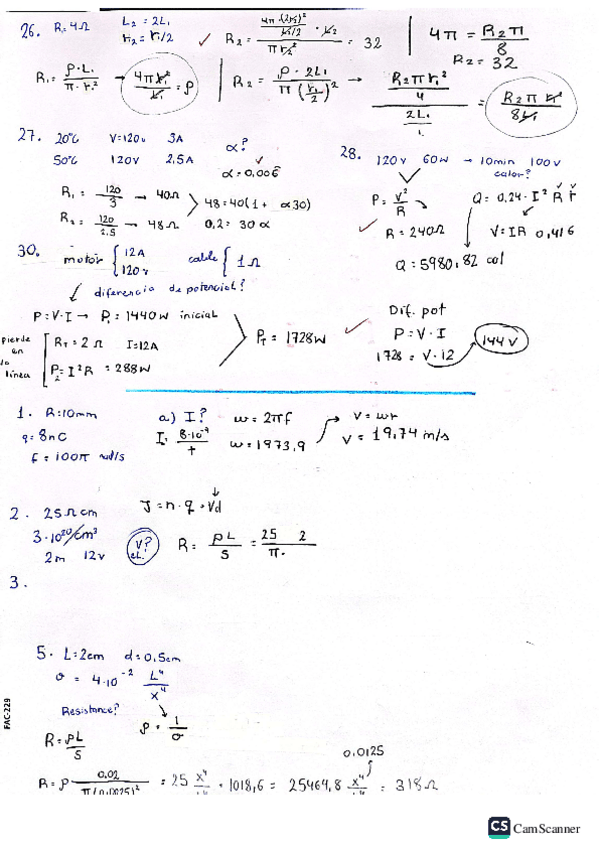 26. R₁=4Ω L₂ = 2L₁
r₂ = r₁/2 ✓ R₂ = 4π·(2r₂)²/L₂/2 · L₂ / π r₂² = 32 4π = R₂π/8
R₂ = 32
R₁ = ρ·L₁/π·r₁² → 4π r₁²/L₁ = ρ R₂ = ρ·2L₁/π(r₁/2)² → R₂πr₁²/4 / 2L₁ = R₂π r₁²/8L₁
27. 20°C V=120v 3A α?
50°C 120v 2.5A α=0,006
R₁ = 120/3 → 40Ω 48=40(1+ α30)
R₂ = 120/2,5 → 48Ω 0,2= 30α
28. 120v 60w → 10min 100v
calor?
P= V²/R Q= 0,24·I² R t
R=240Ω V=IR 0,416
Q= 5980,82 cal
30. motor { 12A 120v cable { 1Ω
diferencia de potencial?
P=V·I → P₁ = 1440w inicial
pierde en la línea [ R_T=2Ω I=12A
P₂= I²R = 288w
P_T = 1728w ✓
Dif. pot
P=V·I
1728 = V·12 144v
1. R=10mm a) I? w= 2πf v= wr
q=8nC I= 8·10⁻⁹/t w=1973,9 v= 19,74 m/s
f=100π rad/s
2. 25Ωcm J=n·q·Vd
3·10²⁰/cm³
2m 12v V? el. R= ρL/S = 25 2/π·
3.
5. L=2cm d=0,5cm
σ = 4·10⁻² L⁴/x⁴
Resistance? ρ= 1/σ
R=ρL/S
0,0125
R=ρ 0,02/π(0,0025)² = 25 x⁴/L⁴ · 1018,6 = 25464,8 x⁴/L⁴ = 318Ω
FAC-229
CS CamScanner